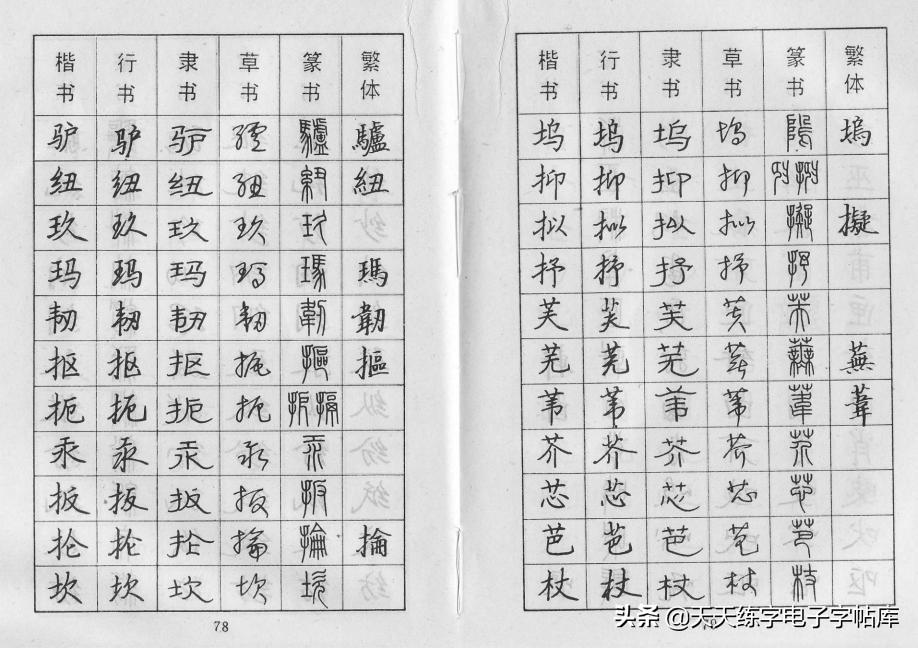 楷书 行书 隶书 草书 篆书 繁体
驴 驴 驴 驴 驢 驢
纽 纽 纽 纽 紐 紐
玖 玖 玖 玖 玖
玛 玛 玛 玛 瑪 瑪
韧 韧 韧 韧 韌 韌
抠 抠 抠 抠 摳 摳
扼 扼 扼 扼 扼 搹
汞 汞 汞 汞 汞
扳 扳 扳 扳 扳
抡 抡 抡 抡 掄 掄
坎 坎 坎 坎 坎
78
楷书 行书 隶书 草书 篆书 繁体
坞 坞 坞 坞 隖 塢
抑 抑 抑 抑
拟 拟 拟 拟 擬 擬
抒 抒 抒 抒 抒
芙 芙 芙 芙 芙
芜 芜 芜 芜 蕪 蕪
苇 苇 苇 苇 葦 葦
芥 芥 芥 芥 芥
芯 芯 芯 芯 芯
芭 芭 芭 芭 芭
杖 杖 杖 杖 杖
头条 @天天练字电子字帖库